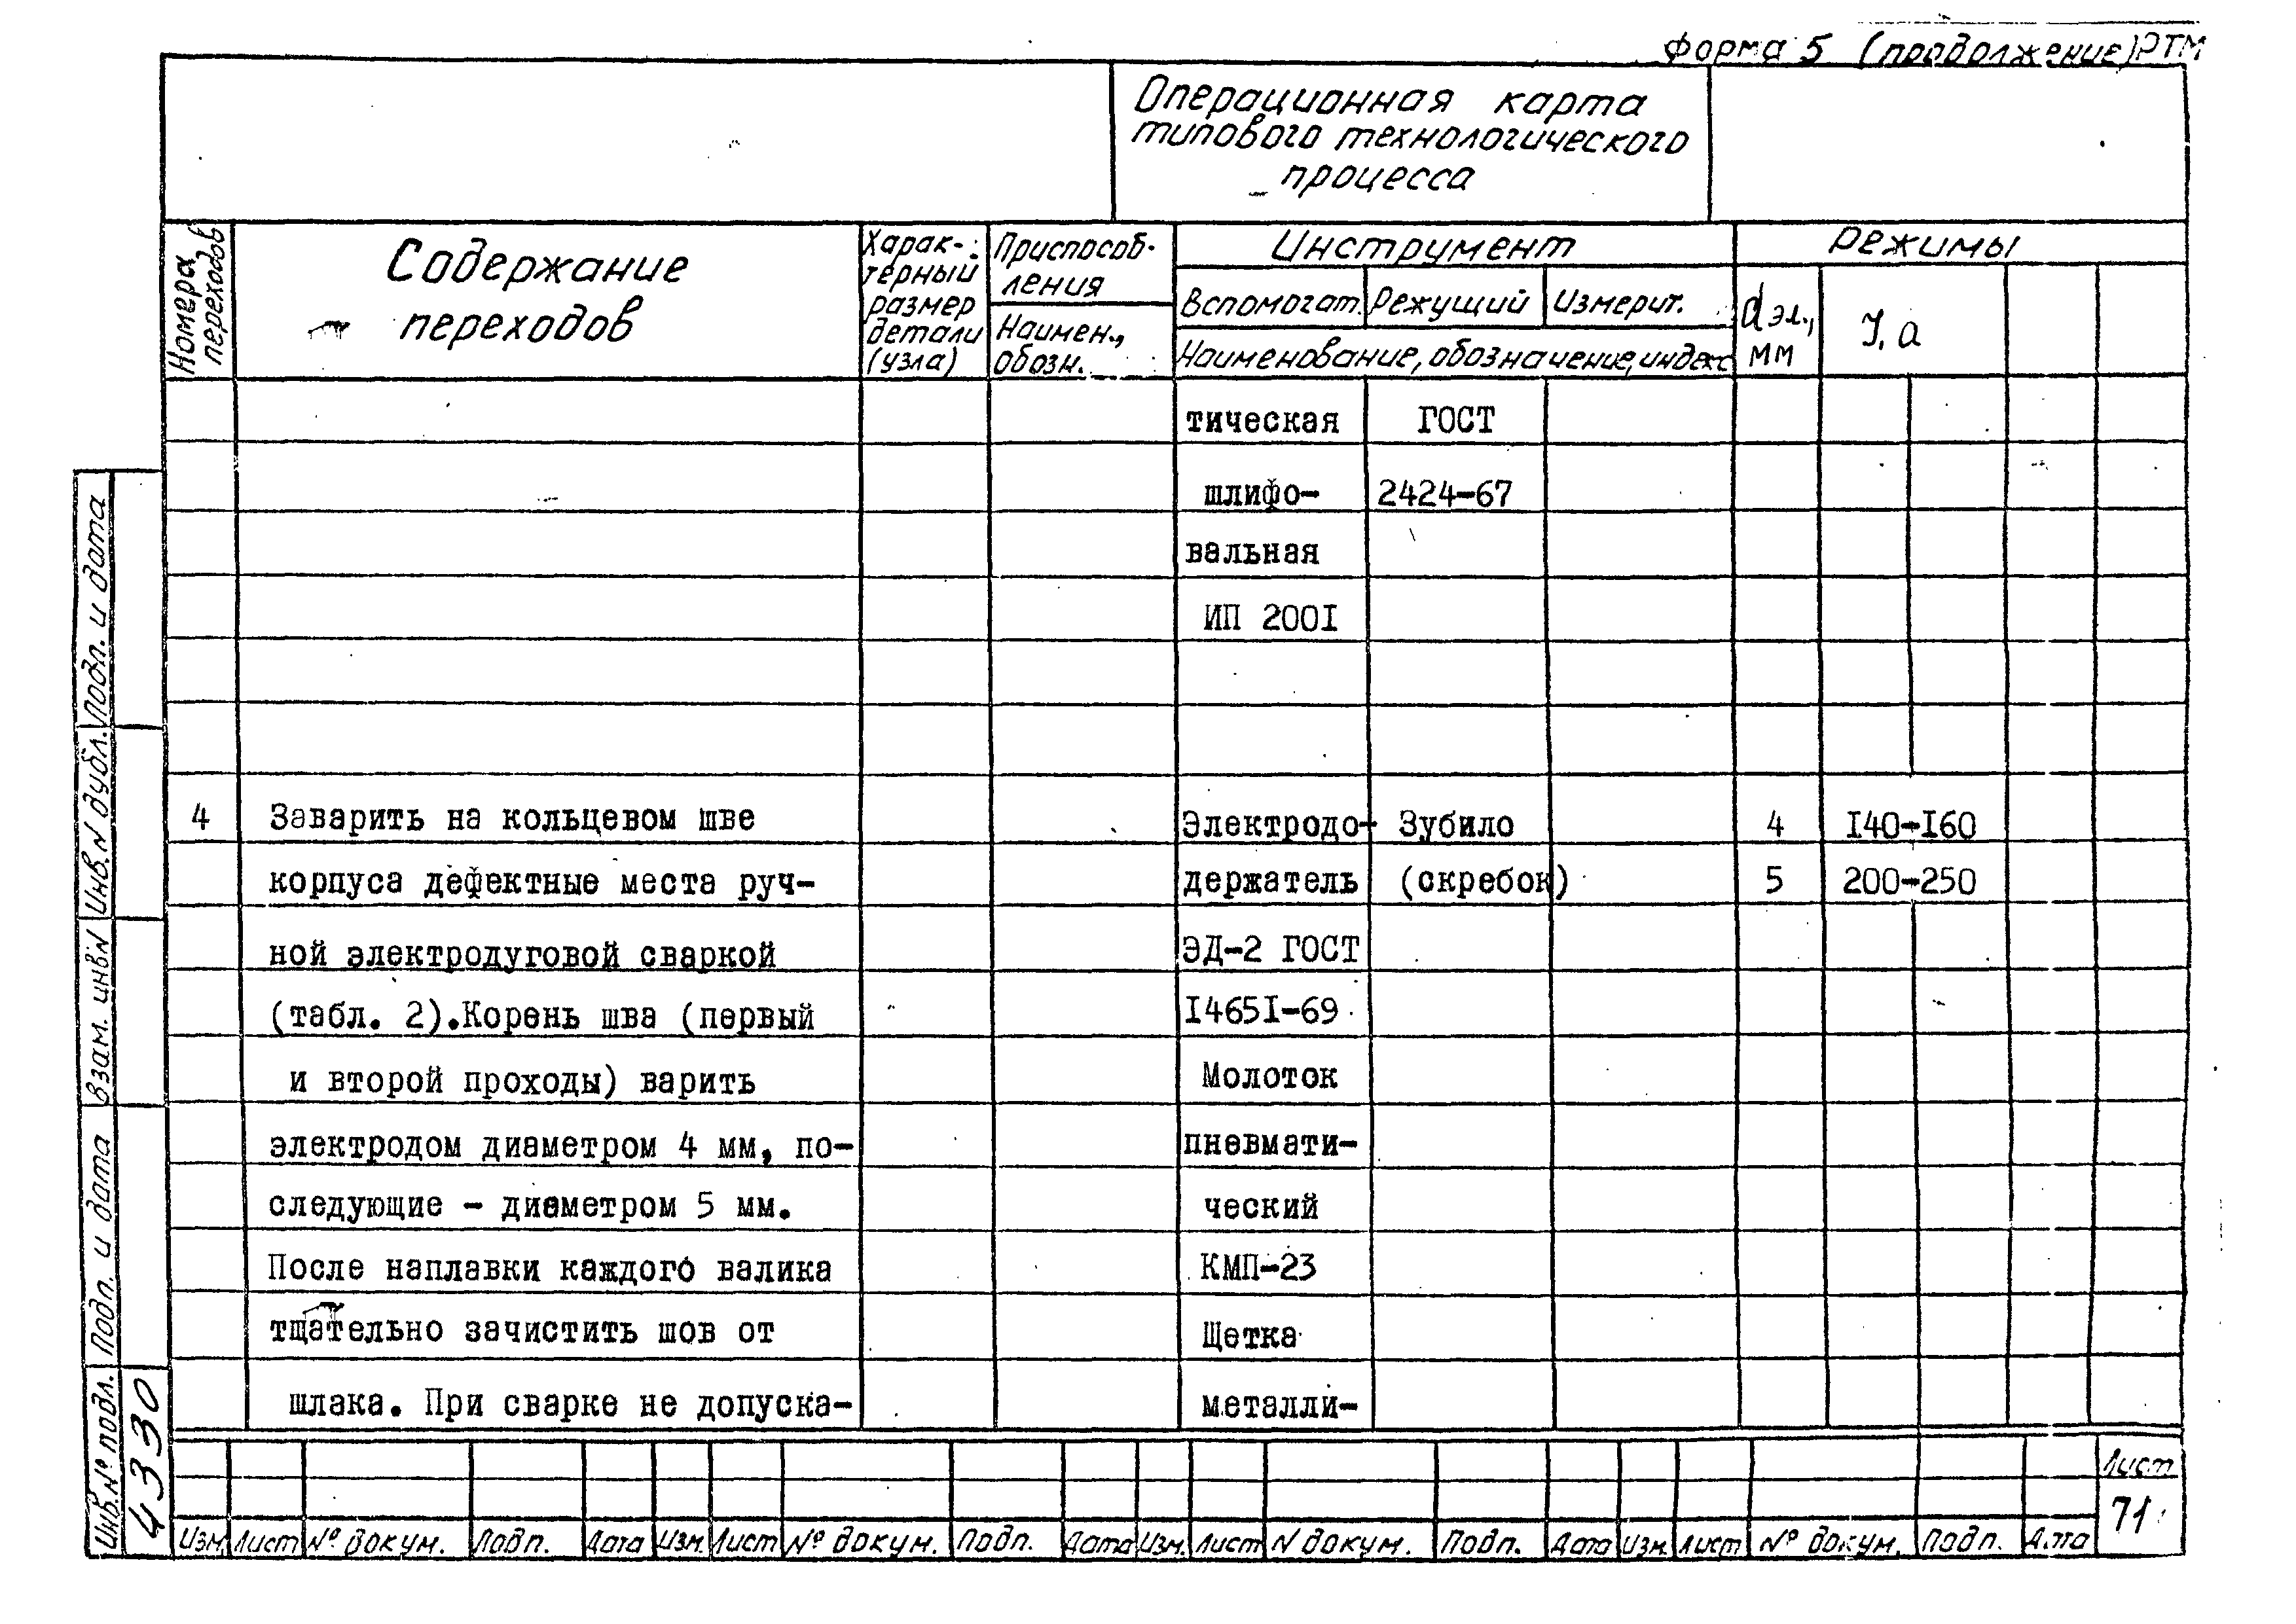 форма 5 (продолжение) РТМ
Операционная карта
типового технологического
процесса
Номера
переходов
Содержание
переходов
Харак-
терный
размер
детали
(узла)
Приспособ-
ления
Наимен.,
обозн.
Инструмент
Вспомогат. Режущий Измерит.
Наименование, обозначение, индекс
Режимы
dэл.,
мм
J, а
тическая ГОСТ
шлифо- 2424-67
вальная
ИП 200I
4 Заварить на кольцевом шве Электродо- Зубило 4 I40-I60
корпуса дефектные места руч- держатель (скребок) 5 200-250
ной электродуговой сваркой ЭД-2 ГОСТ
(табл. 2).Корень шва (первый I465I-69
и второй проходы) варить Молоток
электродом диаметром 4 мм, по- пневмати-
следующие - диаметром 5 мм. ческий
После наплавки каждого валика КМП-23
тщательно зачистить шов от Щетка
шлака. При сварке не допуска- металли-
Подп. и дата
Инв. N дубл.
Взам. инв N
Подп. и дата
Инв. № подл.
4330
Изм. Лист № докум. Подп. Дата Изм. Лист № докум. Подп. Дата Изм. Лист N докум. Подп. Дата Изм. Лист № докум. Подп. Дата
Лист
71